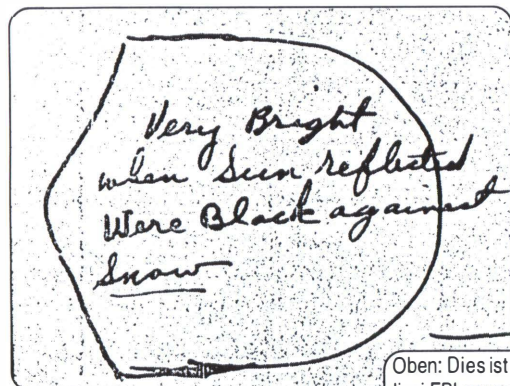 Very Bright
when Sun reflected
Were Black against
Snow
Oben: Dies ist